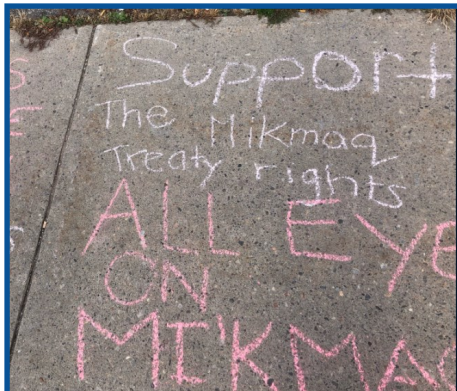 Support
The Mikmaq
Treaty rights
ALL EYE
ON
MI'KMAQ